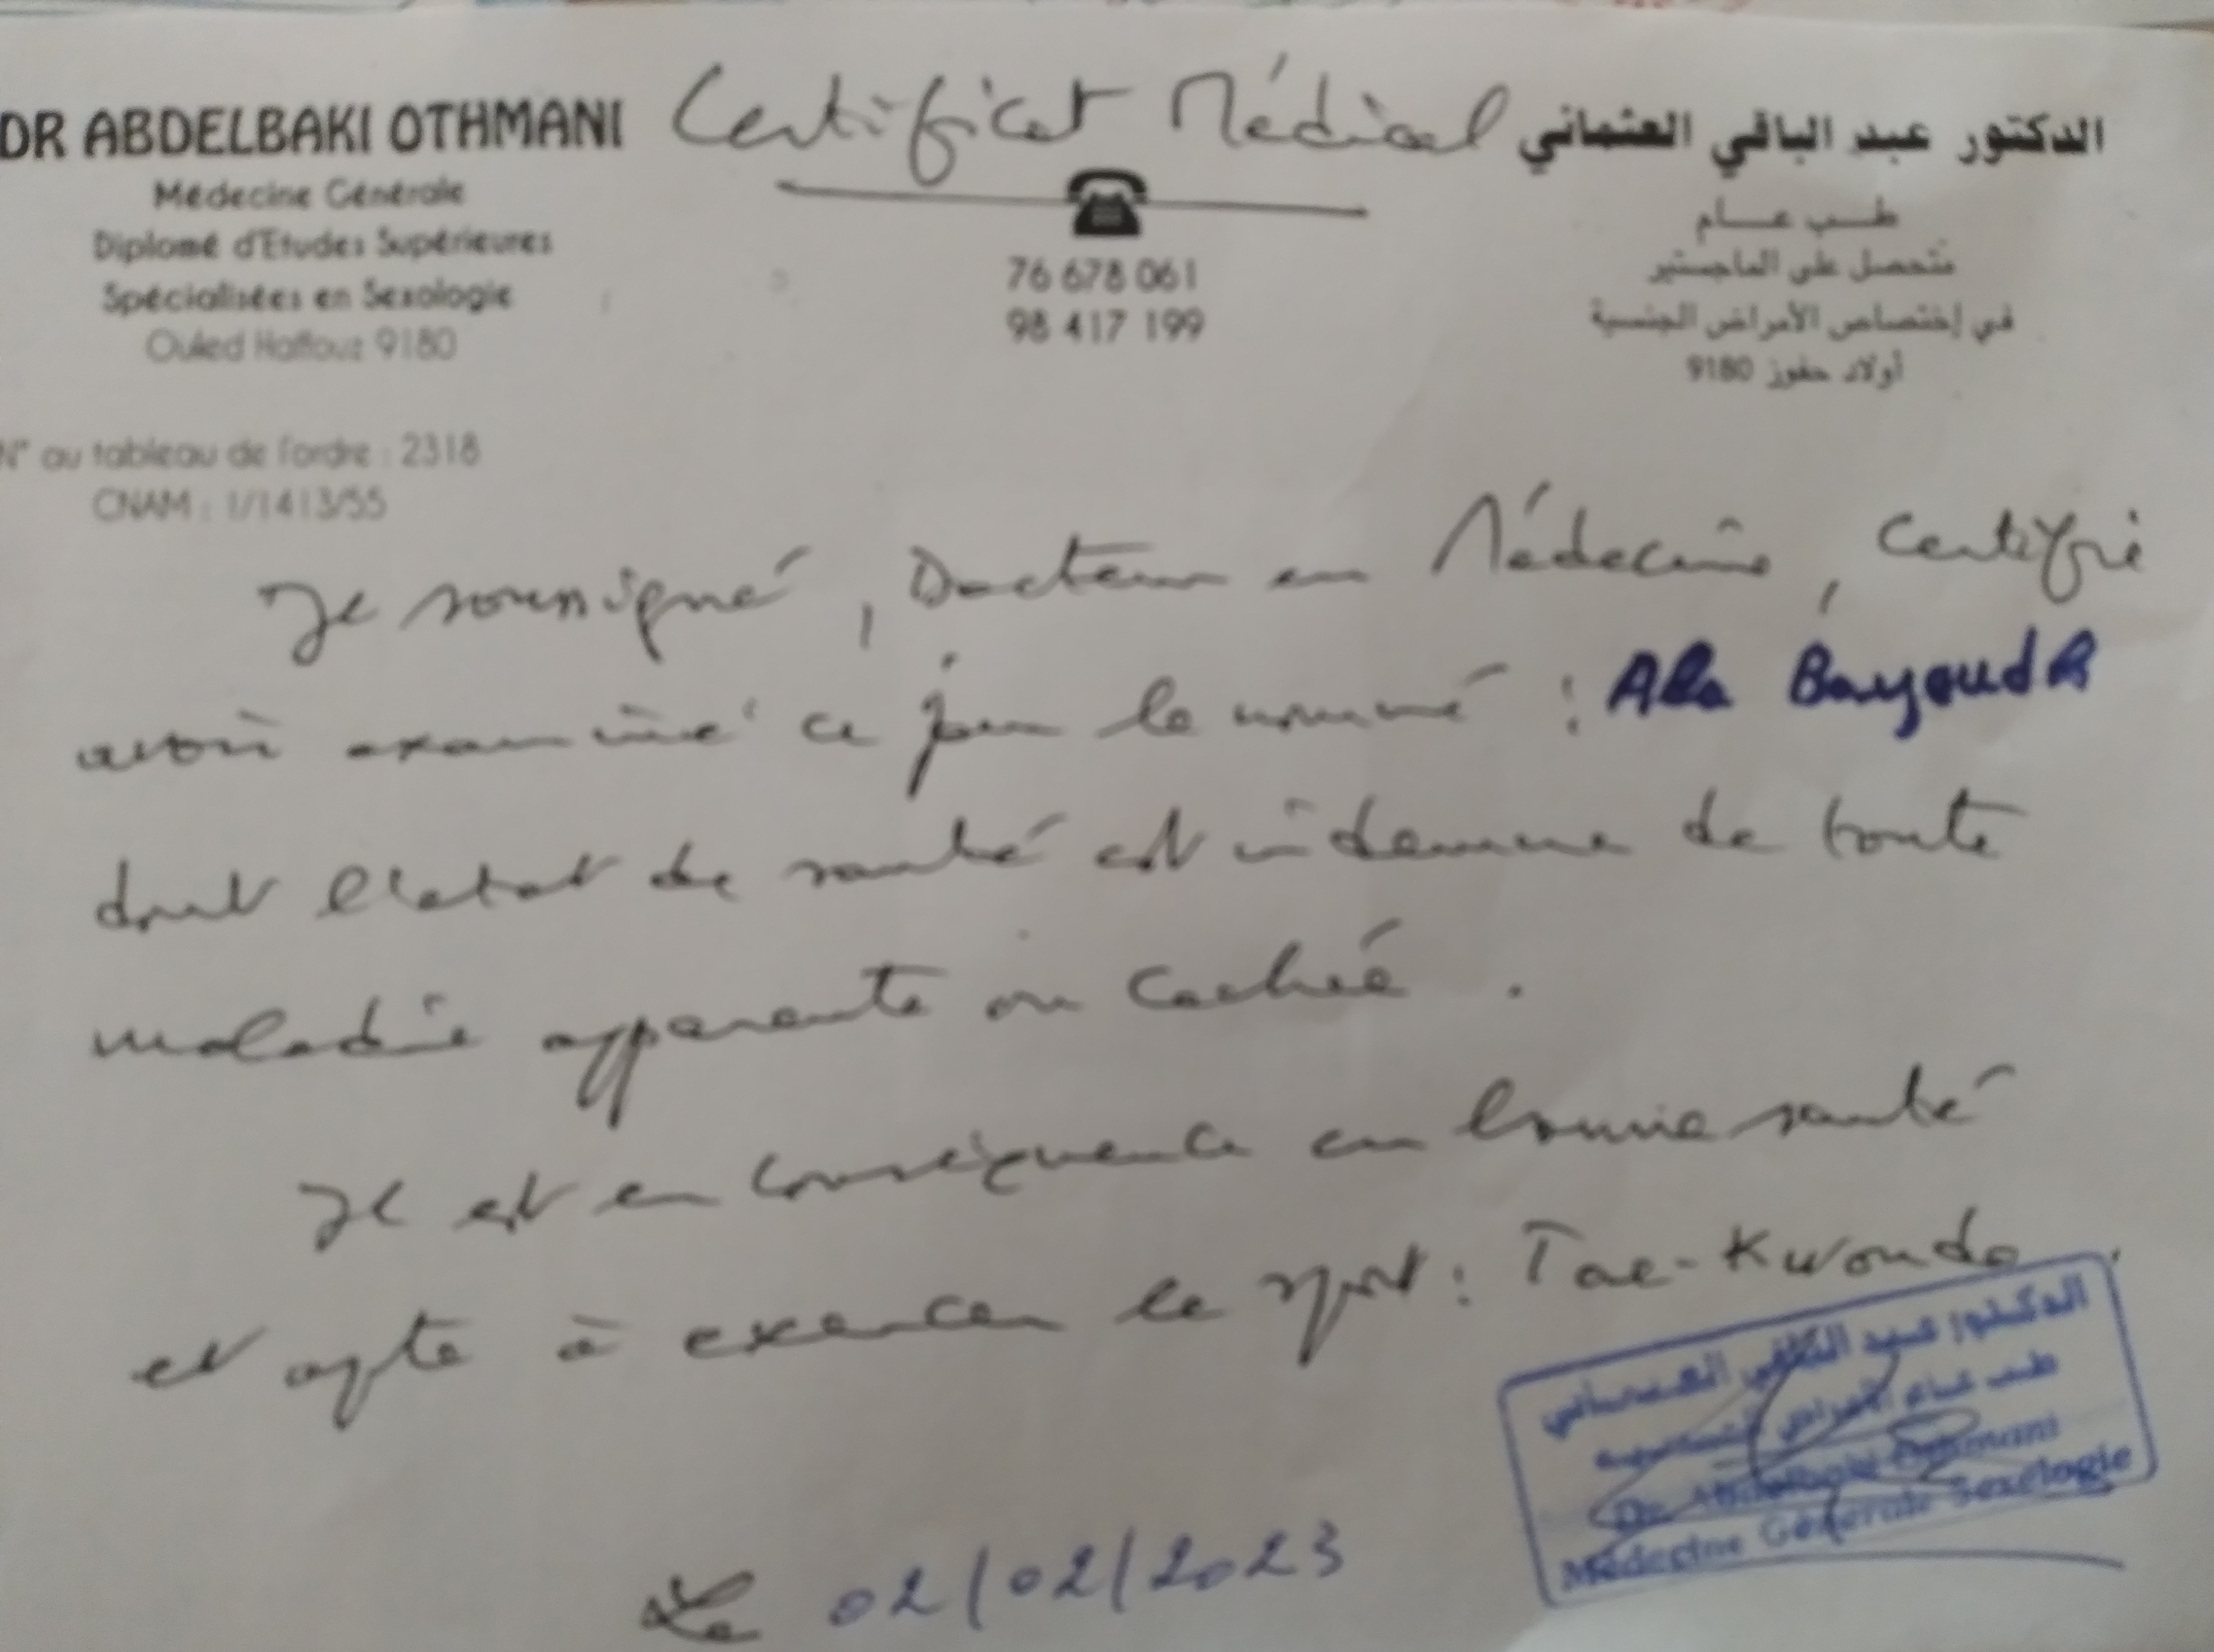 DR ABDELBAKI OTHMANI
Médecine Générale
Diplomé d'Etudes Supérieures
Spécialisées en Sexologie
Ouled Haffouz 9180
N° au tableau de l'ordre : 2318
CNAM : 1/1413/55
Certificat Médical
76 678 061
98 417 199
الدكتور عبد الباقي العثماني
طب عام
متحصل على الماجستير
في إختصاص الأمراض الجنسية
أولاد حفوز 9180
Je soussigné, Docteur en Médecine, Certifie
avoir examiné ce jour le nommé : Ala Bayoudh
dont l'etat de santé est indemne de toute
maladie apparente ou cachée.
Il est en conséquence en bonne santé
et apte à exercer le sport : Tae-Kwondo.
الدكتور عبد الباقي العثماني
طب عام الأمراض الجنسية
Dr. Abdelbaki Othmani
Médecine Générale Sexologie
Le 02/02/2023